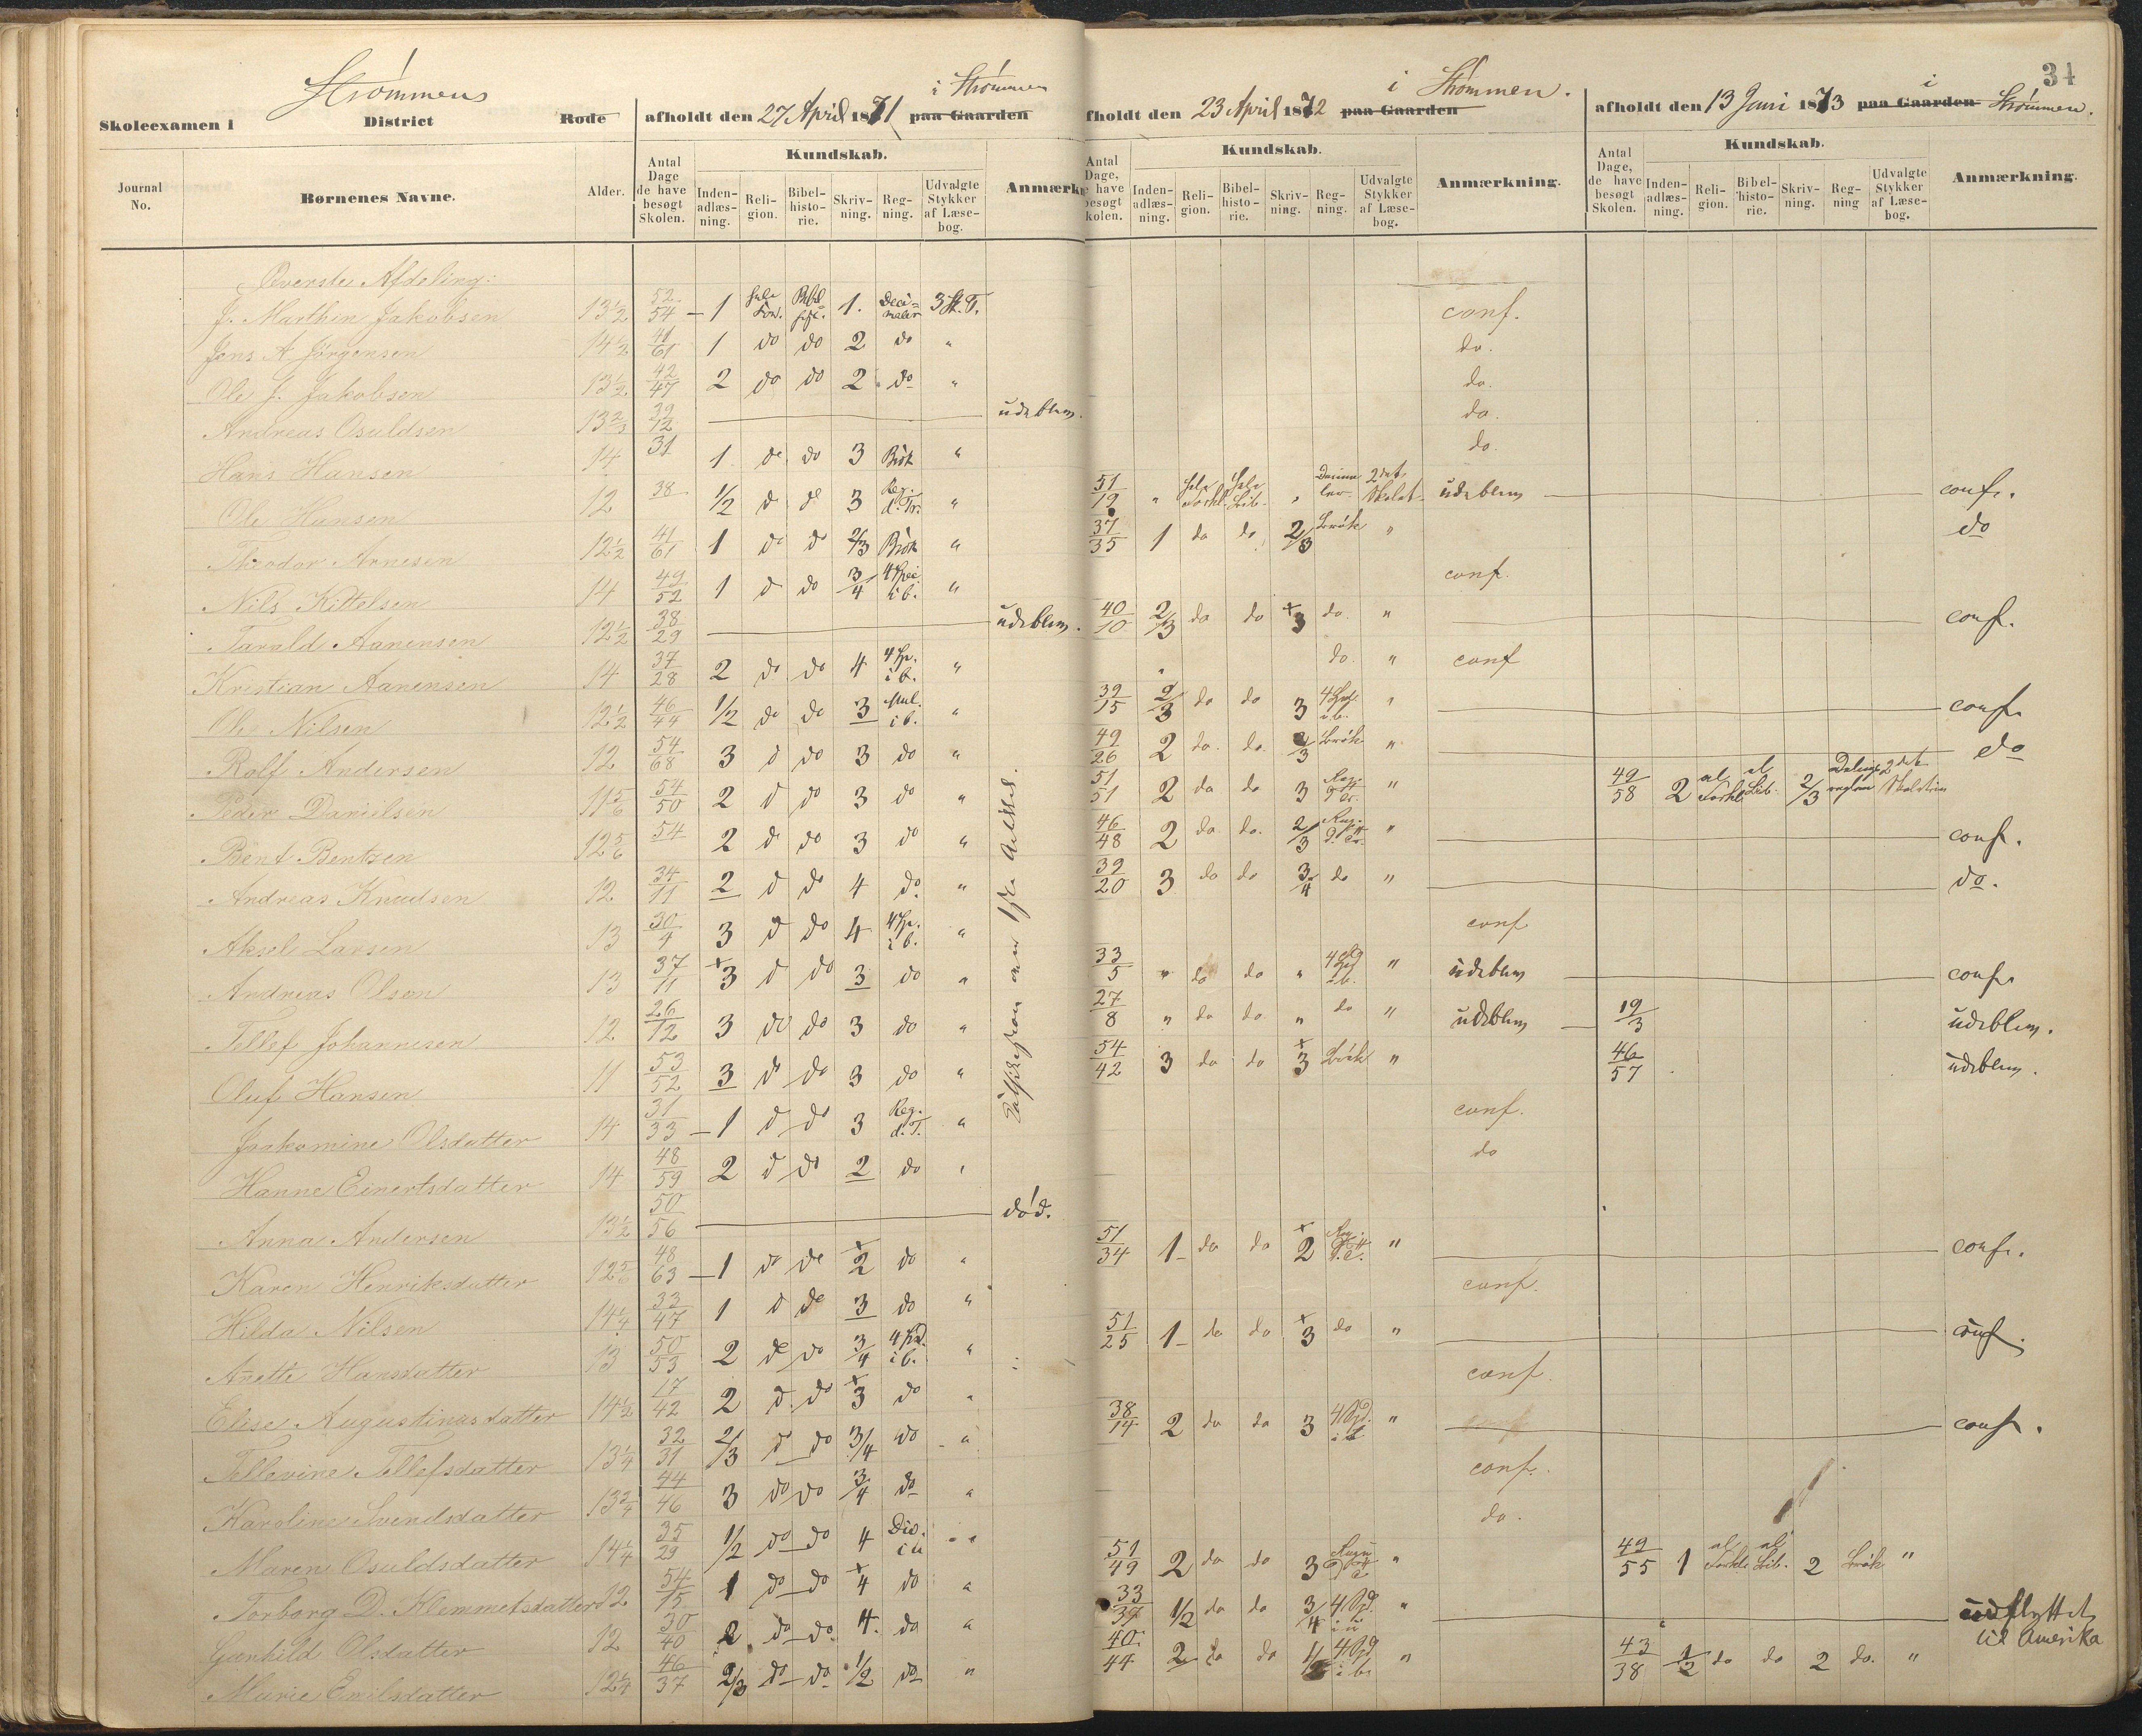 34
Strømmens
Skoleexamen i District Rode afholdt den 27 April 1871 paa Gaarden i Strømmen
fholdt den 23 April 1872 paa Gaarden i Strømmen.
afholdt den 13 Juni 1873 paa Gaarden i Strømmen.
Journal No. Børnenes Navne. Alder. Antal Dage de have besøgt Skolen. Kundskab. Inden-adlæs-ning. Reli-gion. Bibel-histo-rie. Skriv-ning. Reg-ning. Udvalgte Stykker af Læse-bog. Anmærkn
Antal Dage, de have besøgt kolen. Kundskab. Inden-adlæs-ning. Reli-gion. Bibel-histo-rie. Skriv-ning. Reg-ning. Udvalgte Stykker af Læse-bog. Anmærkning.
Antal Dage, de have besøgt Skolen. Kundskab. Inden-adlæs-ning. Reli-gion. Bibel-histo-rie. Skriv-ning. Reg-ning Udvalgte Stykker af Læse-bog. Anmærkning.
Øverste Afdeling:
J. Marthin Jakobsen 13 1/2 52/54 1 1. Deci-maler 3 St. T. conf.
Jens A. Jørgensen 14 1/2 41/61 1 do do 2 do " do.
Ole J. Jakobsen 13 1/2 42/47 2 do do 2 do " do.
Andreas Osuldsen 13 2/3 39/12 udeblev. do.
Hans Hansen 14 31 1 do do 3 Brøk " do
Ole Hansen 12 38 1/2 d d 3 Reg. d. Tr. " 51/19 " " udeblev conf.
Theodor Arnesen 12 1/2 41/61 1 d d 2/3 Brøk " 37/35 1 do do 2/3 Brøk " do
Nils Kittelsen 14 49/52 1 d do 3/4 4 Spec. i b. " conf.
Tarald Aanensen 12 1/2 38/29 udeblev. 40/10 2/3 do do 3 do. " conf.
Kristian Aanensen 14 37/28 2 do do 4 4 Sp. i b. " do. " conf
Ole Nilsen 12 1/2 46/44 1/2 do do 3 Mul. i b. " 39/15 2/3 do do 3 " conf.
Rolf Andersen 12 54/68 3 d do 3 do " 49/26 2 do. do. 2/3 Brøk " do
Peder Danielsen 11 5/6 54/50 2 d do 3 do " 51/51 2 do do 3 " 49/58 2 2/3
Bent Bentzen 12 5/6 54 2 d do 3 do " 46/48 2 do do. 2/3 " conf.
Andreas Knudsen 12 34/11 2 d do 4 do " 39/20 3 do do 3/4 do " do.
Aksel Larsen 13 30/4 3 d do 4 4 Sp. i b. " conf
Andreas Olsen 13 37/11 3 d do 3 do " 33/5 " do do " " udeblev conf.
Tellef Johannesen 12 26/12 3 do do 3 do " 27/8 " do do. " do " udeblev 19/3 udeblev.
Oluf Hansen 11 53/52 3 do do 3 do " 54/42 3 do do 3 Brøk " 46/57 udeblev.
Jaskomine Olsdatter 14 31/33 1 d do 3 Reg. d. T. " conf.
Hanne Einertsdatter 14 48/59 2 d do 2 do " do
Anna Andersen 13 1/2 50/56 død.
Karen Henriksdatter 12 5/6 48/63 1 do do 2 do " 51/34 1 do do 2 " conf.
Hilda Nilsen 14 1/4 33/47 1 d do 3 do " conf.
Anette Hansdatter 13 50/53 2 do do 3/4 i b. " 51/25 1 do do 3 do " conf.
Elise Augustinusdatter 14 1/2 17/42 2 d. do 3 do " conf.
Tellevine Tellefsdatter 13 1/4 32/31 2/3 d do 3/4 do " 38/14 2 do do 3 " conf.
Karoline Svendsdatter 13 3/4 44/46 3 do do 3/4 do " conf.
Maren Osuldsdatter 14 1/4 35/29 1/2 do do 4 Div. " do.
Torborg D. Klemmetsdatter 12 54/15 1 do do 4 do " 51/49 2 do do 3 " 49/55 1 2 Brøk "
Gunhild Olsdatter 12 30/40 2 do do. 4. do " 33/37 1/2 do do 3/4 " udflyttet til Amerika
Marie Emilsdatter 12 1/4 46/37 2/3 do do 1/2 do " 40/44 2 do do i b. " 43/38 1/2 do do 2 do. "